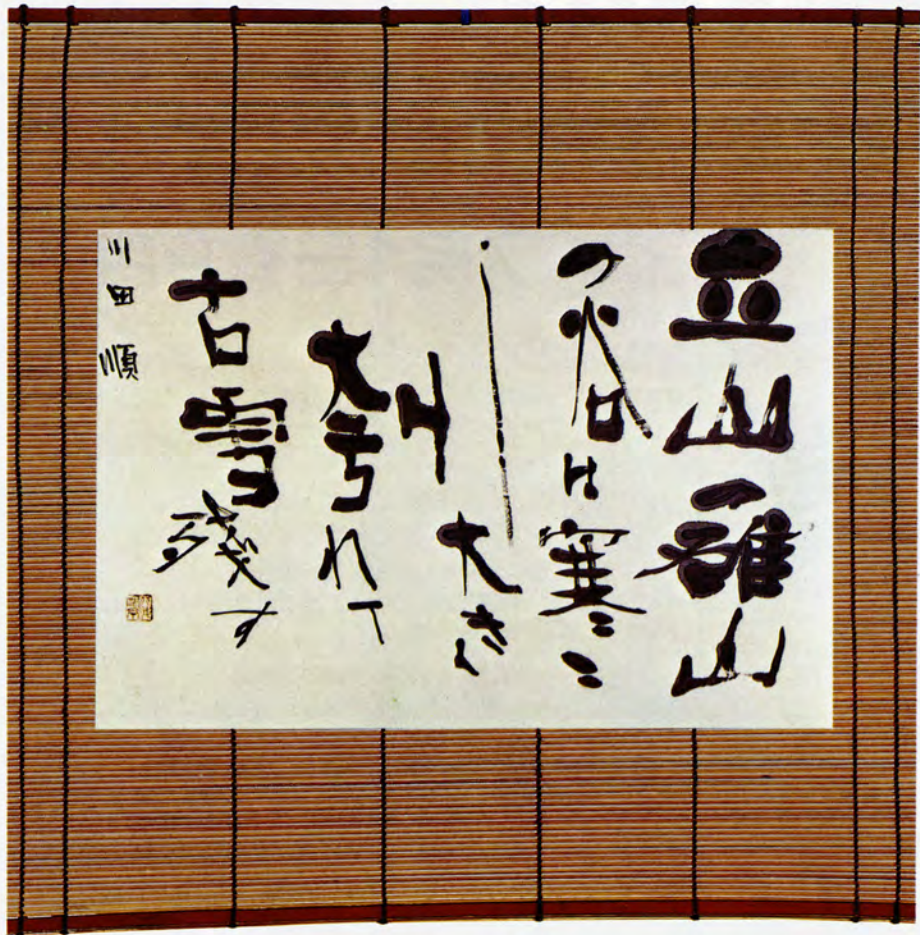 立山雄山
の谷は寒々
し
大きく
刳れて
古雪残す
川田順